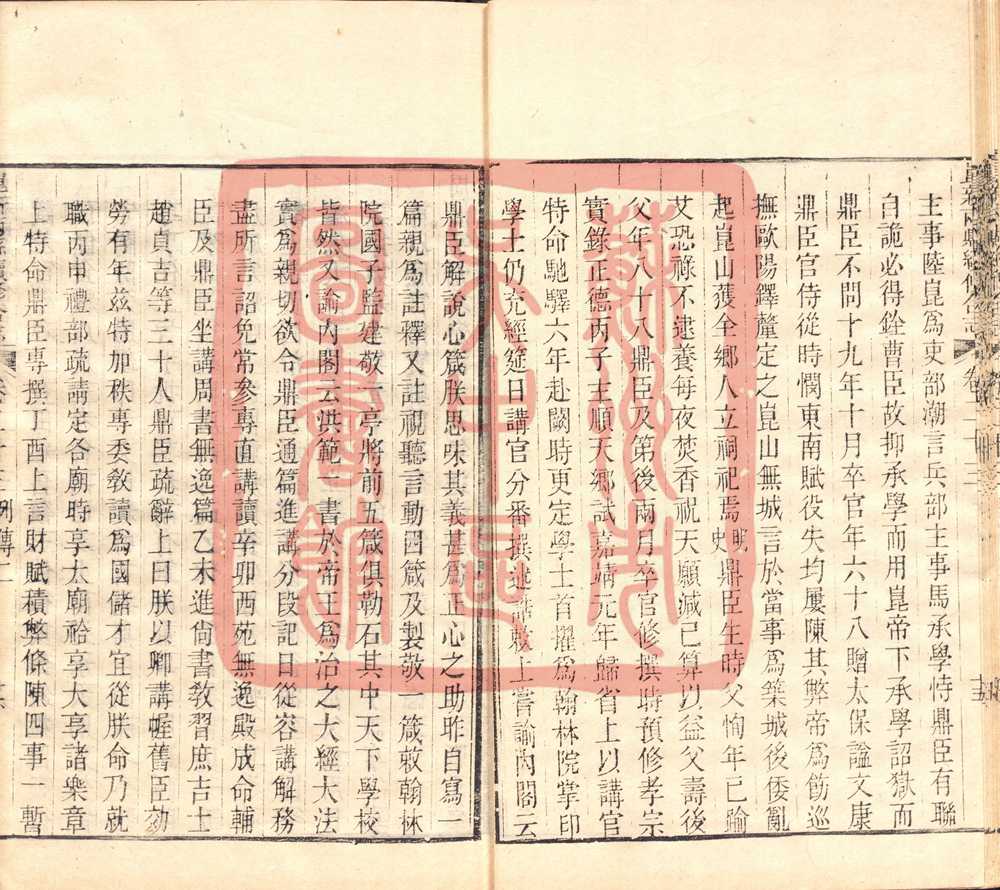 主事陸崑爲吏部潮言兵部主事馬承學恃鼎臣有聯
自詭必得銓曹臣故抑承學而用崑帝下承學詔獄而
鼎臣不問十九年十月卒官年六十八贈太保諡文康
鼎臣官侍從時憫東南賦役失均屢陳其弊帝爲飭巡
撫歐陽鐸釐定之崑山無城言於當事爲築城後倭亂
起崑山獲全鄉人立祠祀焉明史鼎臣生時父恂年已踰
艾恐祿不逮養每夜焚香祝天願減己算以益父壽後
父年八十八鼎臣及第後兩月卒官修撰時預修孝宗
實錄正德丙子主順天鄉試嘉靖元年歸省上以講官
特命馳驛六年赴闕時更定學士首擢爲翰林院掌印
學士仍充經筵日講官分番撰述誥敕上嘗諭內閣云
鼎臣解說心箴朕思味其義甚爲正心之助昨自寫一
篇親爲註釋又註視聽言動四箴及製敬一箴敕翰林
院國子監建敬一亭將前五箴俱勒石其中天下學校
皆然又諭內閣云洪範一書於帝王爲治之大經大法
實爲親切欲令鼎臣通篇進講分段記日從容講解務
盡所言詔免常參專直講讀辛卯西苑無逸殿成命輔
臣及鼎臣坐講周書無逸篇乙未進尙書敎習庶吉士
趙貞吉等三十人鼎臣疏辭上曰朕以卿講幄舊臣効
勞有年兹特加秩專委敎讀爲國儲才宜從朕命乃就
職丙申禮部疏請定各廟時享太廟祫享大享諸樂章
上特命鼎臣專撰丁酉上言財賦積弊條陳四事一暫